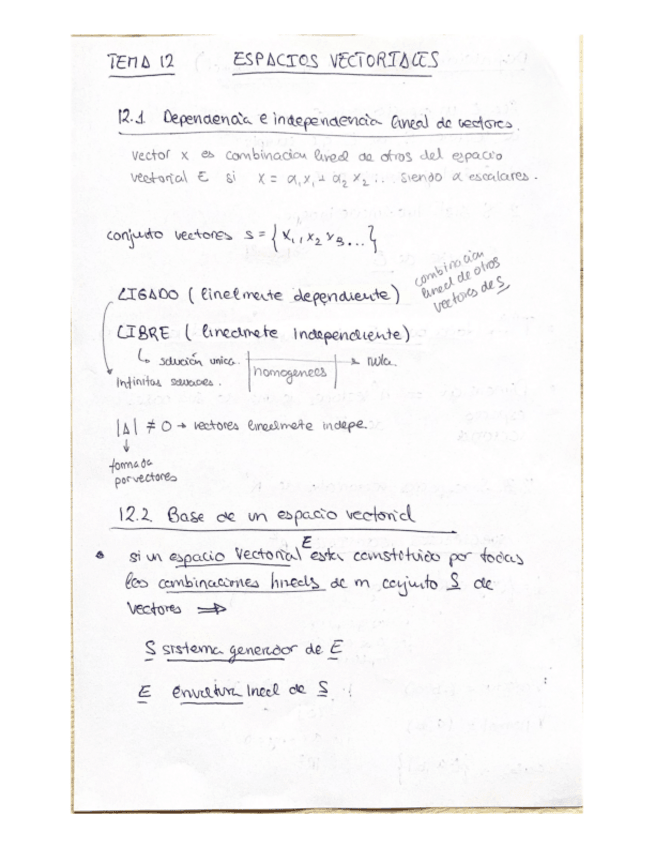 TEMA 12 ESPACIOS VECTORIALES
12.1 Dependencia e independencia lineal de vectores.
vector x es combinacion lineal de otros del espacio
vectorial E si x = α₁x₁ + α₂x₂ .. siendo α escalares.
conjunto vectores S = {x₁, x₂ x₃...}
combinacion
lineal de otros
vectores de S
LIGADO ( linelmente dependiente)
LIBRE ( linealmete independiente)
↳ solución unica. homogeneos → nula.
Infinitas soluciones.
|A| ≠ 0 → vectores linealmete indepe.
↓
formada
por vectores
12.2 Base de un espacio vectorial
• si un espacio vectorial E esta constituido por todas
las combinaciones lineals de m cojunto S de
vectores ⇒
S sistema generador de E
E envoltura lineal de S